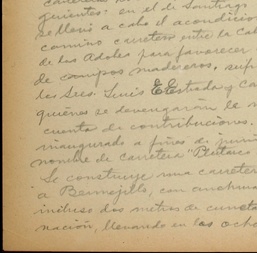 carreteras
guientes: en el de Santiago
se llevó a cabo el acondicio
camino carretero entre la Cab
de los Adobes para favorecer
de campos madereros, sufra
los Sres. Luis E. Estrada y Ca
quienes se devengarán de s
cuenta de contribuciones.
inaugurado a fines de juni
nombre de Carretera "Plutarco
Se construye una carreter
a Bermejillo, con anchura
incluso dos metros de cuneta
nación, llevando en los ocho